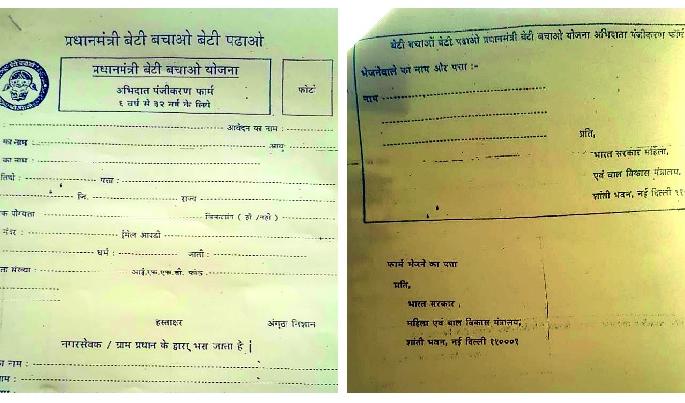 प्रधानमंत्री बेटी बचाओ बेटी पढाओ
प्रधानमंत्री बेटी बचाओ योजना
अभिदात पंजीकरण फार्म
६ वर्ष से ३२ वर्ष के लिये
फोटो
आवेदन का नाम :
का नाम : आयु
का नाम :
तिथी : पत्ता :
जि. राज्य
क योग्यता विकलांग ( हाँ /नहीं )
नंबर : ईमेल आयडी
धर्म : जाती :
ता संख्या : आई.एफ.एस.सी. कोड
हस्ताक्षर अंगुठा निशान
नगरसेवक / ग्राम प्रधान के द्वारा भरा जाता है
का नाम :
नाम :
बेटी बचाओं बेटी पढाओ प्रधानमंत्री बेटी बचाओ योजना अभिदाता पंजीकरण फॉर्म
भेजनेवाले का नाम और पत्ता :-
नाम
प्रति,
भारत सरकार महिला,
एवं बाल विकास मंत्रालय,
शांती भवन, नई दिल्ली
फार्म भेजने का पत्ता
प्रति,
भारत सरकार ,
महिला एवं बाल विकास मंत्रालय,
शांती भवन, नई दिल्ली ११०००१